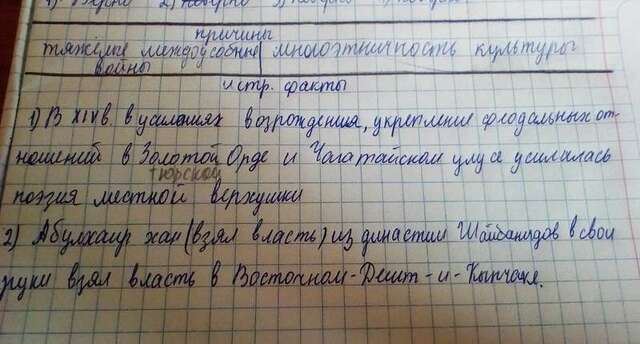 причины
тяжёлые междоусобные многоэтничность культуры
войны
истр. факты
1) В XIV в. в условиях возрождения, укрепление феодальных от-
ношений в Золотой Орде и Чагатайском улусе усилилась
тюрской
поэзия местной верхушки
2) Абулхаир хан (взял власть) из династии Шайбанидов в свои
руки взял власть в Восточном-Дешт-и-Кыпчаке.